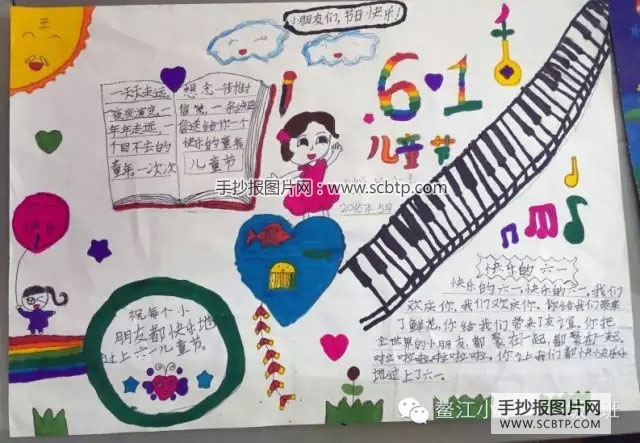 小朋友们,节日快乐!
6·1
儿童节
一天天走远,
一夜夜演变,
年年走远,
个回不去的
童年一次次
想念一封封
信笺,一条短
信送给你一个
快乐的童年
儿童节
手抄报图片网:www.scbtp.com
2015年5月
快乐
祝每个小
朋友都快乐地
过上六一儿童节
快乐的六一
快乐的六一,快乐的六一,我们
欢庆你,我们欢庆你。你给我们带来
了鲜花,你给我们带来了友谊,你把
全世界的小朋友,都聚在一起,都聚在一起。
啦啦啦啦啦啦啦,你让我们都快快乐乐
地过上了六一。
鳌江小
班
手抄报图片网
WWW.SCBTP.COM